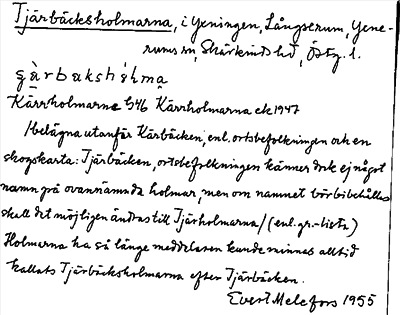 Tjärbäcksholmarna, i Yxningen, Långserum, Yxne-
rums sn, Skärkinds hd, Östg. l.
çàrbaksh̥ólma̧
Kärrholmarna G46 Kärrholmarna ek 1947
Belägna utanför Kärbäcken, enl. ortsbefolkningen och en
skogskarta: Tjärbäcken, ortsbefolkningen känner dock ej något
namn på ovannämnda holmar, men om namnet bör bibehållas
skall det möjligen ändras till Tjärholmarna/(enl. gr.-lista)
Holmarna ha så länge meddelaren kunde minnas alltid
kallats Tjärbäcksholmarna efter Tjärbäcken.
Evert Melefors 1955